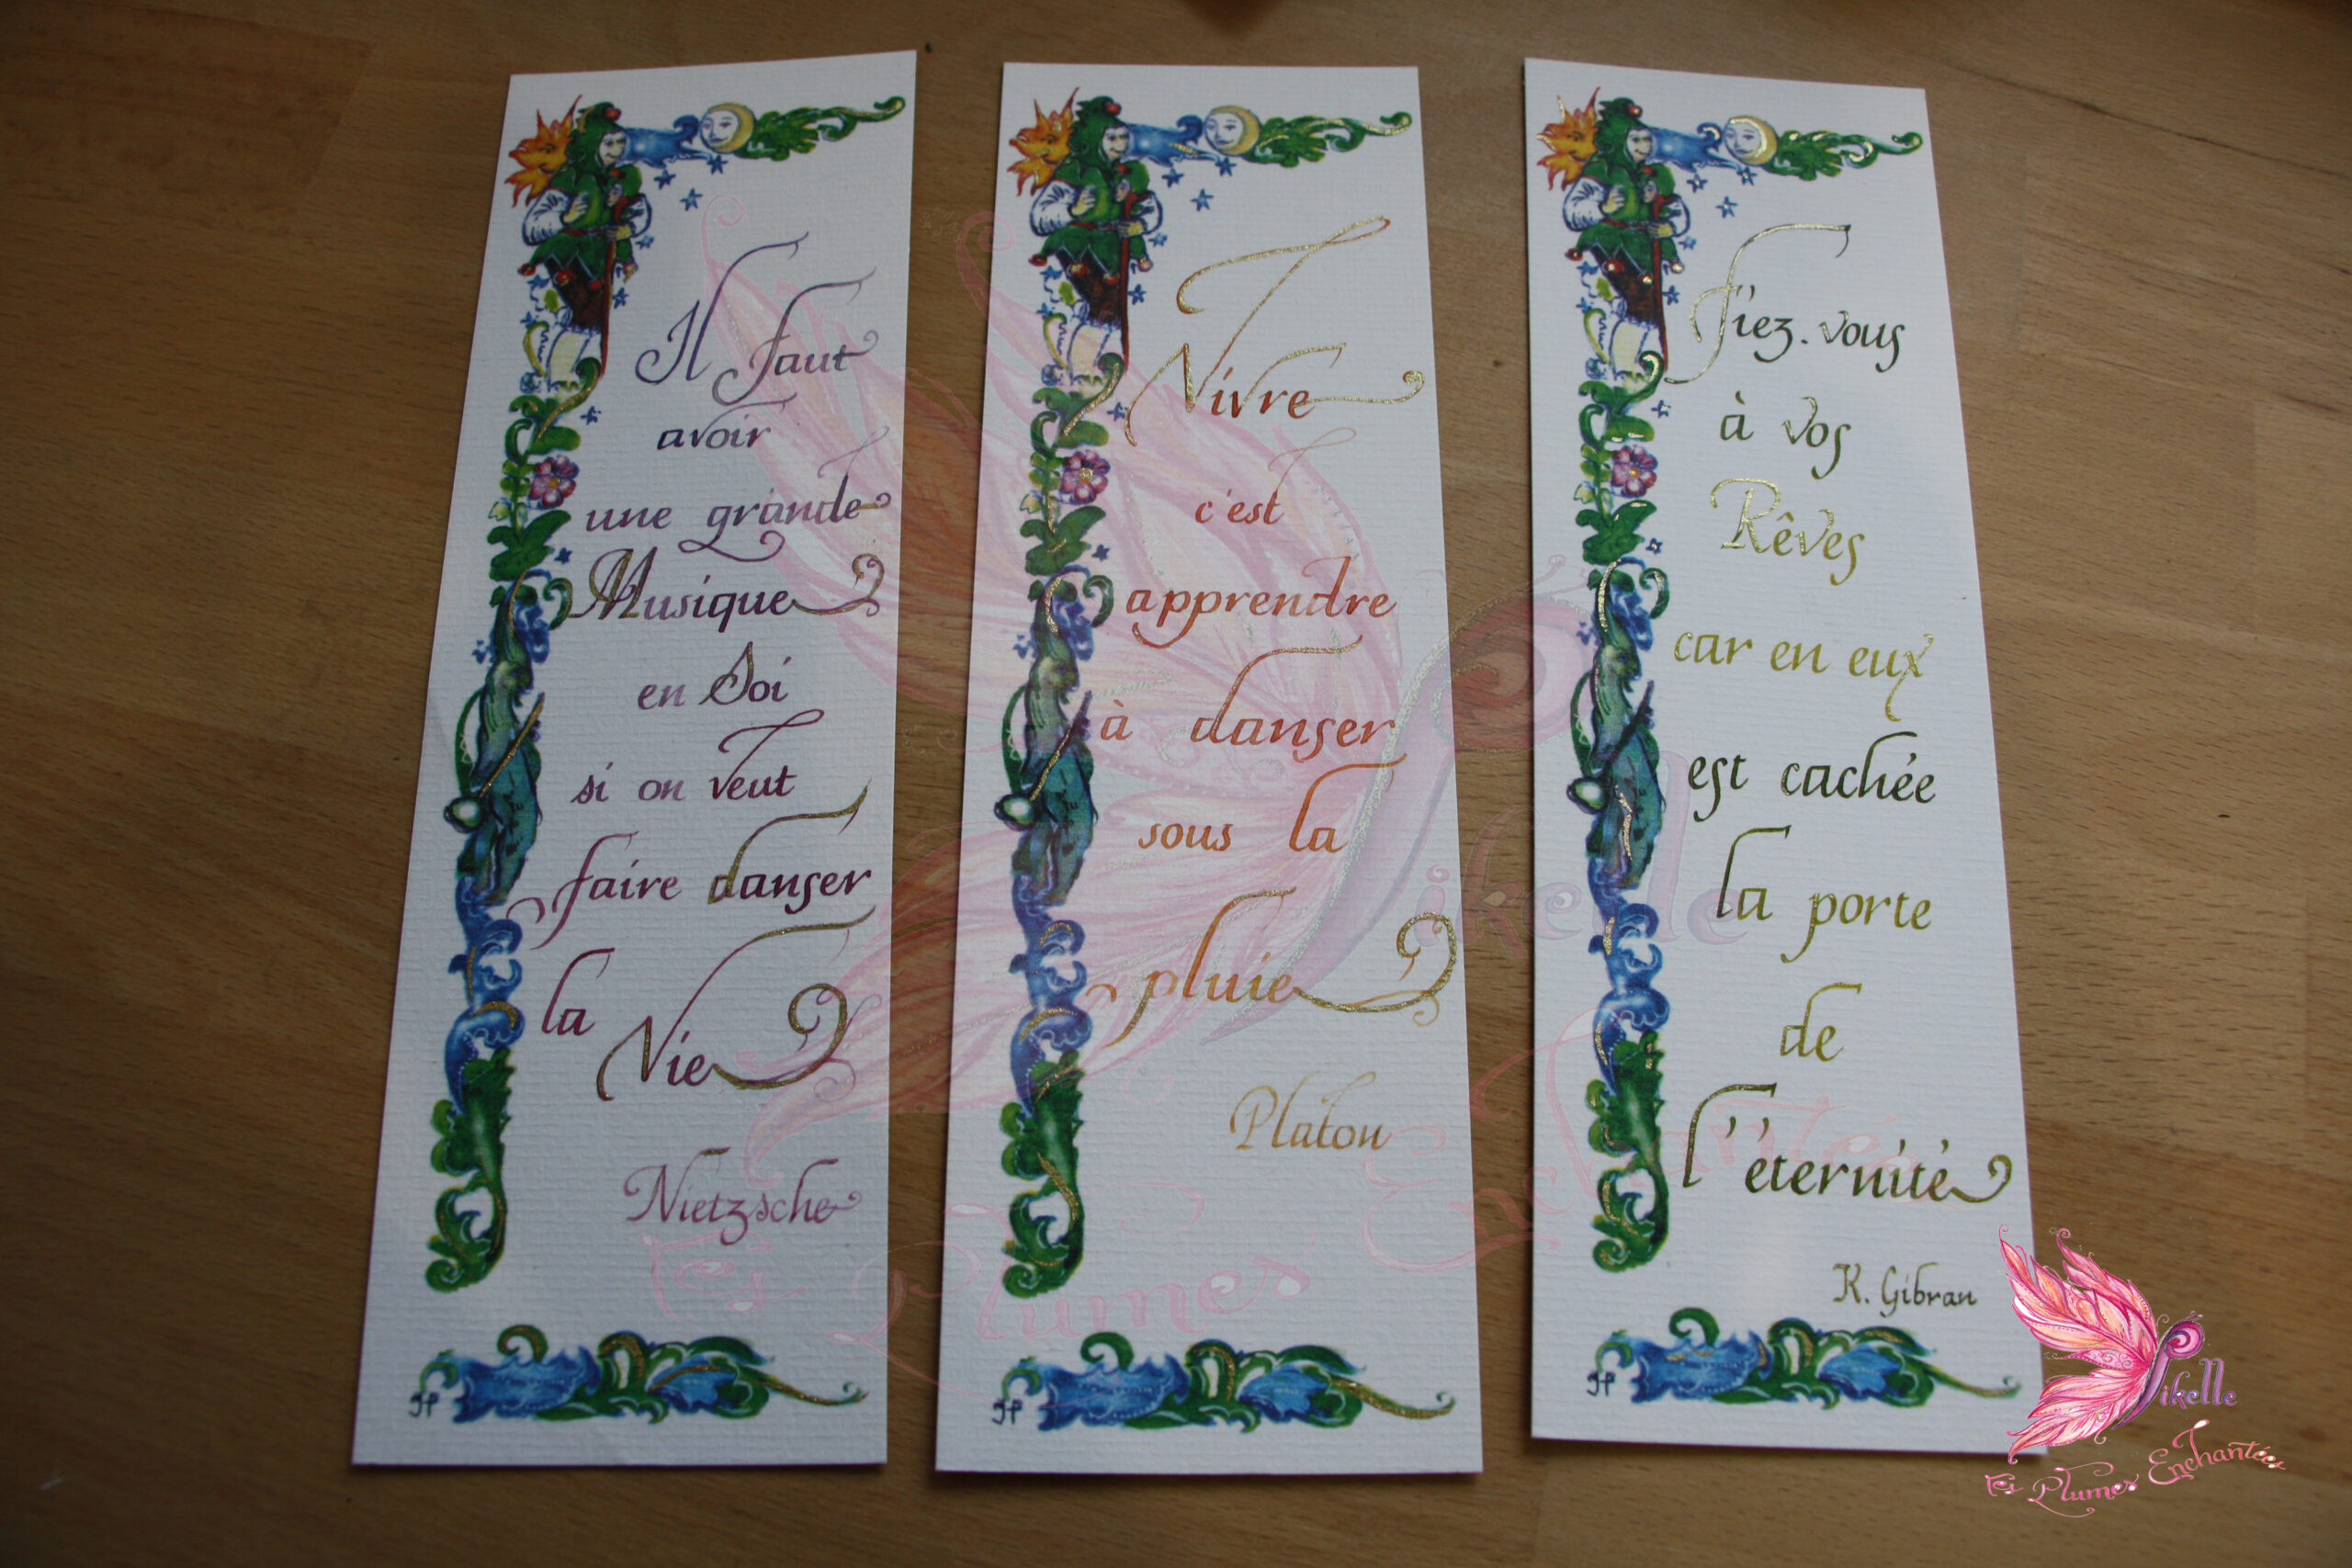 Il faut
avoir
une grande
Musique
en Soi
si on veut
faire danser
la Vie
Nietzsche
Vivre
c'est
apprendre
à danser
sous la
pluie
Platon
Fiez-vous
à vos
Rêves
car en eux
est cachée
la porte
de
l'éternité
K. Gibran
Pikelle
Les Plumes Enchantées
Pikelle
Les Plumes Enchantées